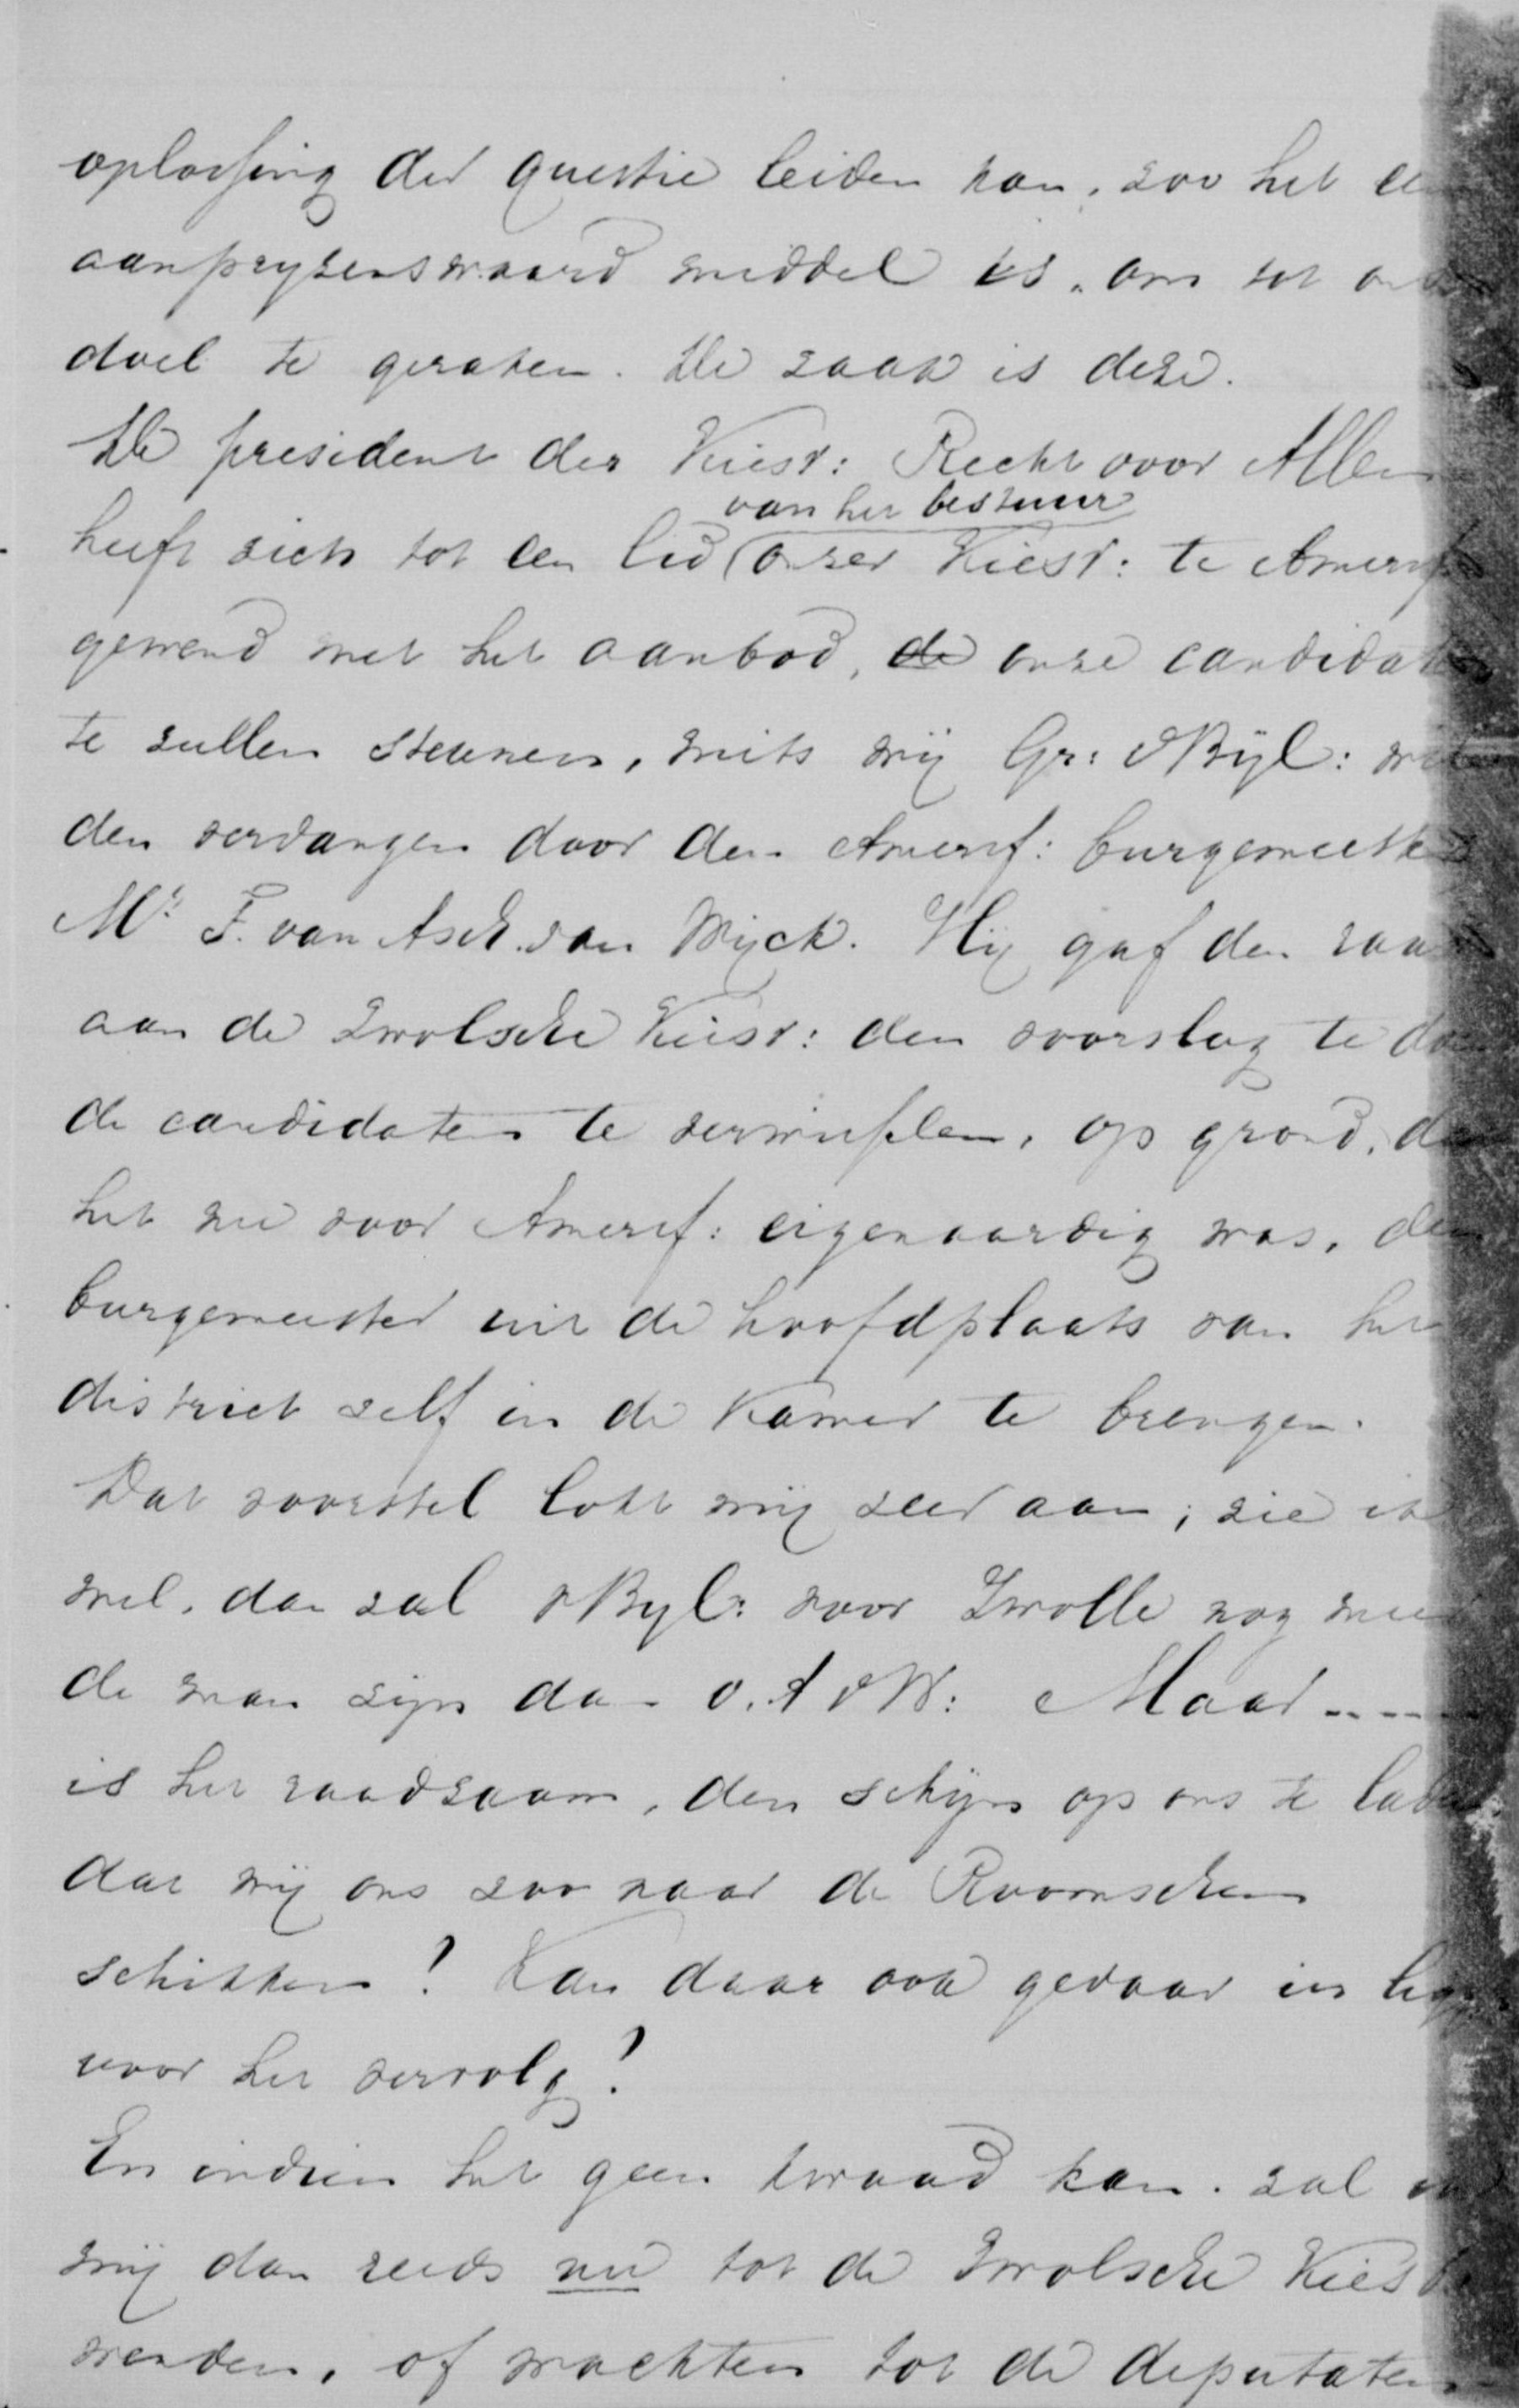 oplossing der questie leiden kan, zoo het een
aanprijzenswaard middel is, om tot ons
doel te geraken. De zaak is deze.
De president der Kiesv: Recht voor Allen
heeft zich tot een lid (van het bestuur
onzer Kiesv: te Amersf
gewend met het aanbod, de onze candidaten
te zullen steunen, mits wij Gr: v Bijl: wil
den vervangen door den Amersf: burgemeester
Mr F. van Asch van Wijck. Hij gaf den raad
aan de Zwolsche Kiesv: den voorslag te doen
de candidaten te verwisselen, op grond, dat
het nu voor Amersf: eigenaardig was, den
burgemeester uit de hoofdplaats van het
district zelf in de Kamer te brengen.
Dat voorstel lokt mij zeer aan; zie ik
wel, dan zal v Bijl: voor Zwolle nog meer
de man zijn dan v. A v W: Maar ....
is het raadzaam, den schijn op ons te laden
dat wij ons zoo naar de Roomschen
schikken? Kan daar ook gevaar in liggen
voor het vervolg?
En indien het geen kwaad kan, zal ik
mij dan reeds nu tot de Zwolsche Kiesv
wenden, of wachten tot de deputaten